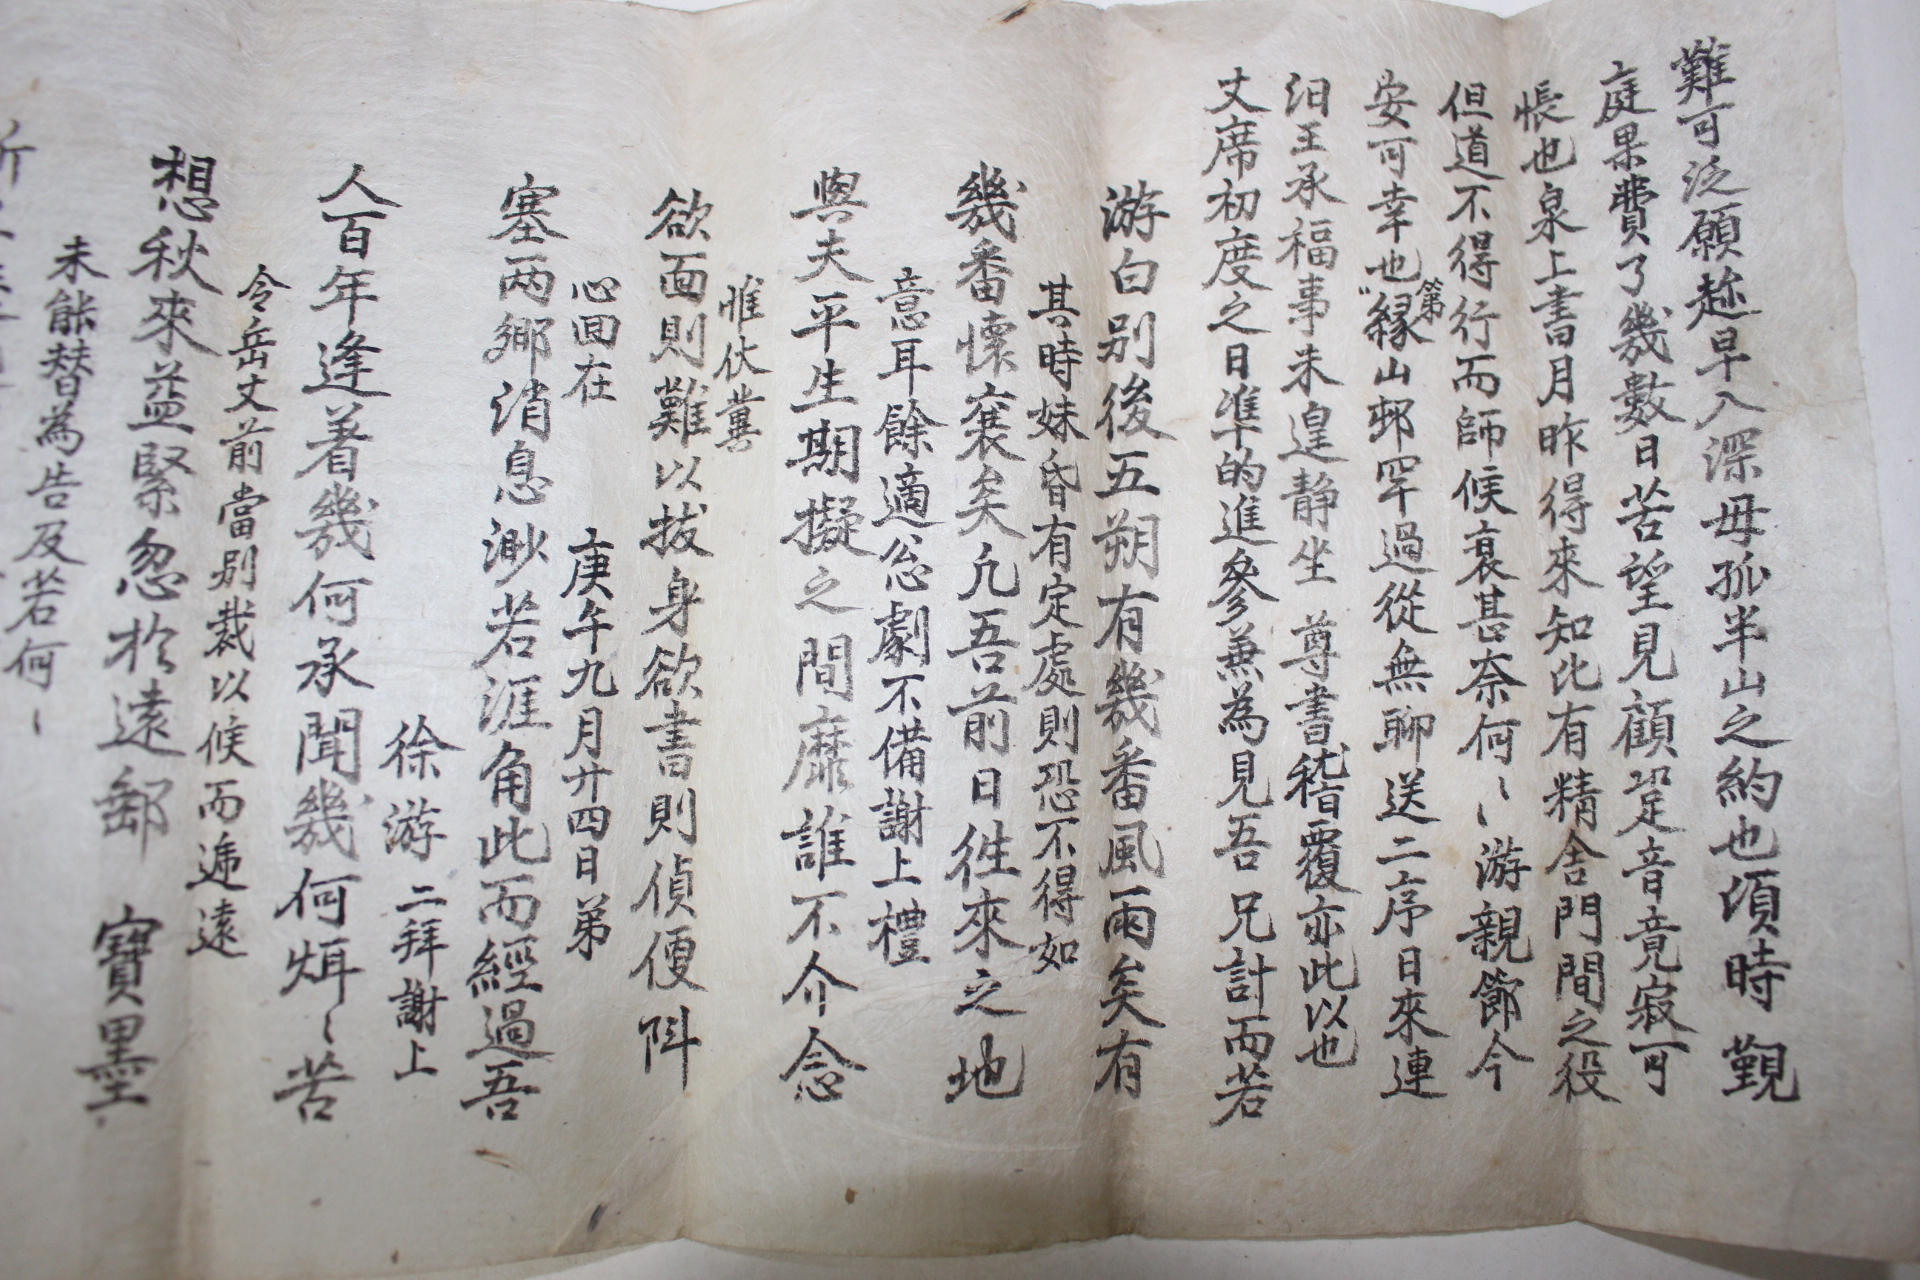 游白别後五朔有幾番風雨矣有
幾番懷襄矣凢吾前日徃來之地
與夫平生期擬之間靡誰不介念
欲面則難以拔身欲書則偵便阧
塞两鄉消息渺若涯角此而經過吾
人百年逢着幾何承聞幾何烓〻苦
想秋來益緊忽於遠郵 寶墨
難可泛願趂早入深毋孤半山之約也頃時 觐
庭果費了幾數日苦望見顧跫音竟寂可
悵也泉上書月昨得來知比有精舍門間之役
但道不得行而師候衰甚奈何〻游親節今
安可幸也第緣山邨罕過從無聊送二序日來連
汨王承福事未遑静坐 尊書嵆覆亦此以也
丈席初度之日準的進參兼為見吾兄計而若
其時妹昏有定處則恐不得如
意耳餘適忩劇不備謝上禮
惟伏兾
心回在
庚午九月卄四日弟
徐游 二拜謝上
令岳丈前當别裁以候而逓遠
未能替為告及若何〻